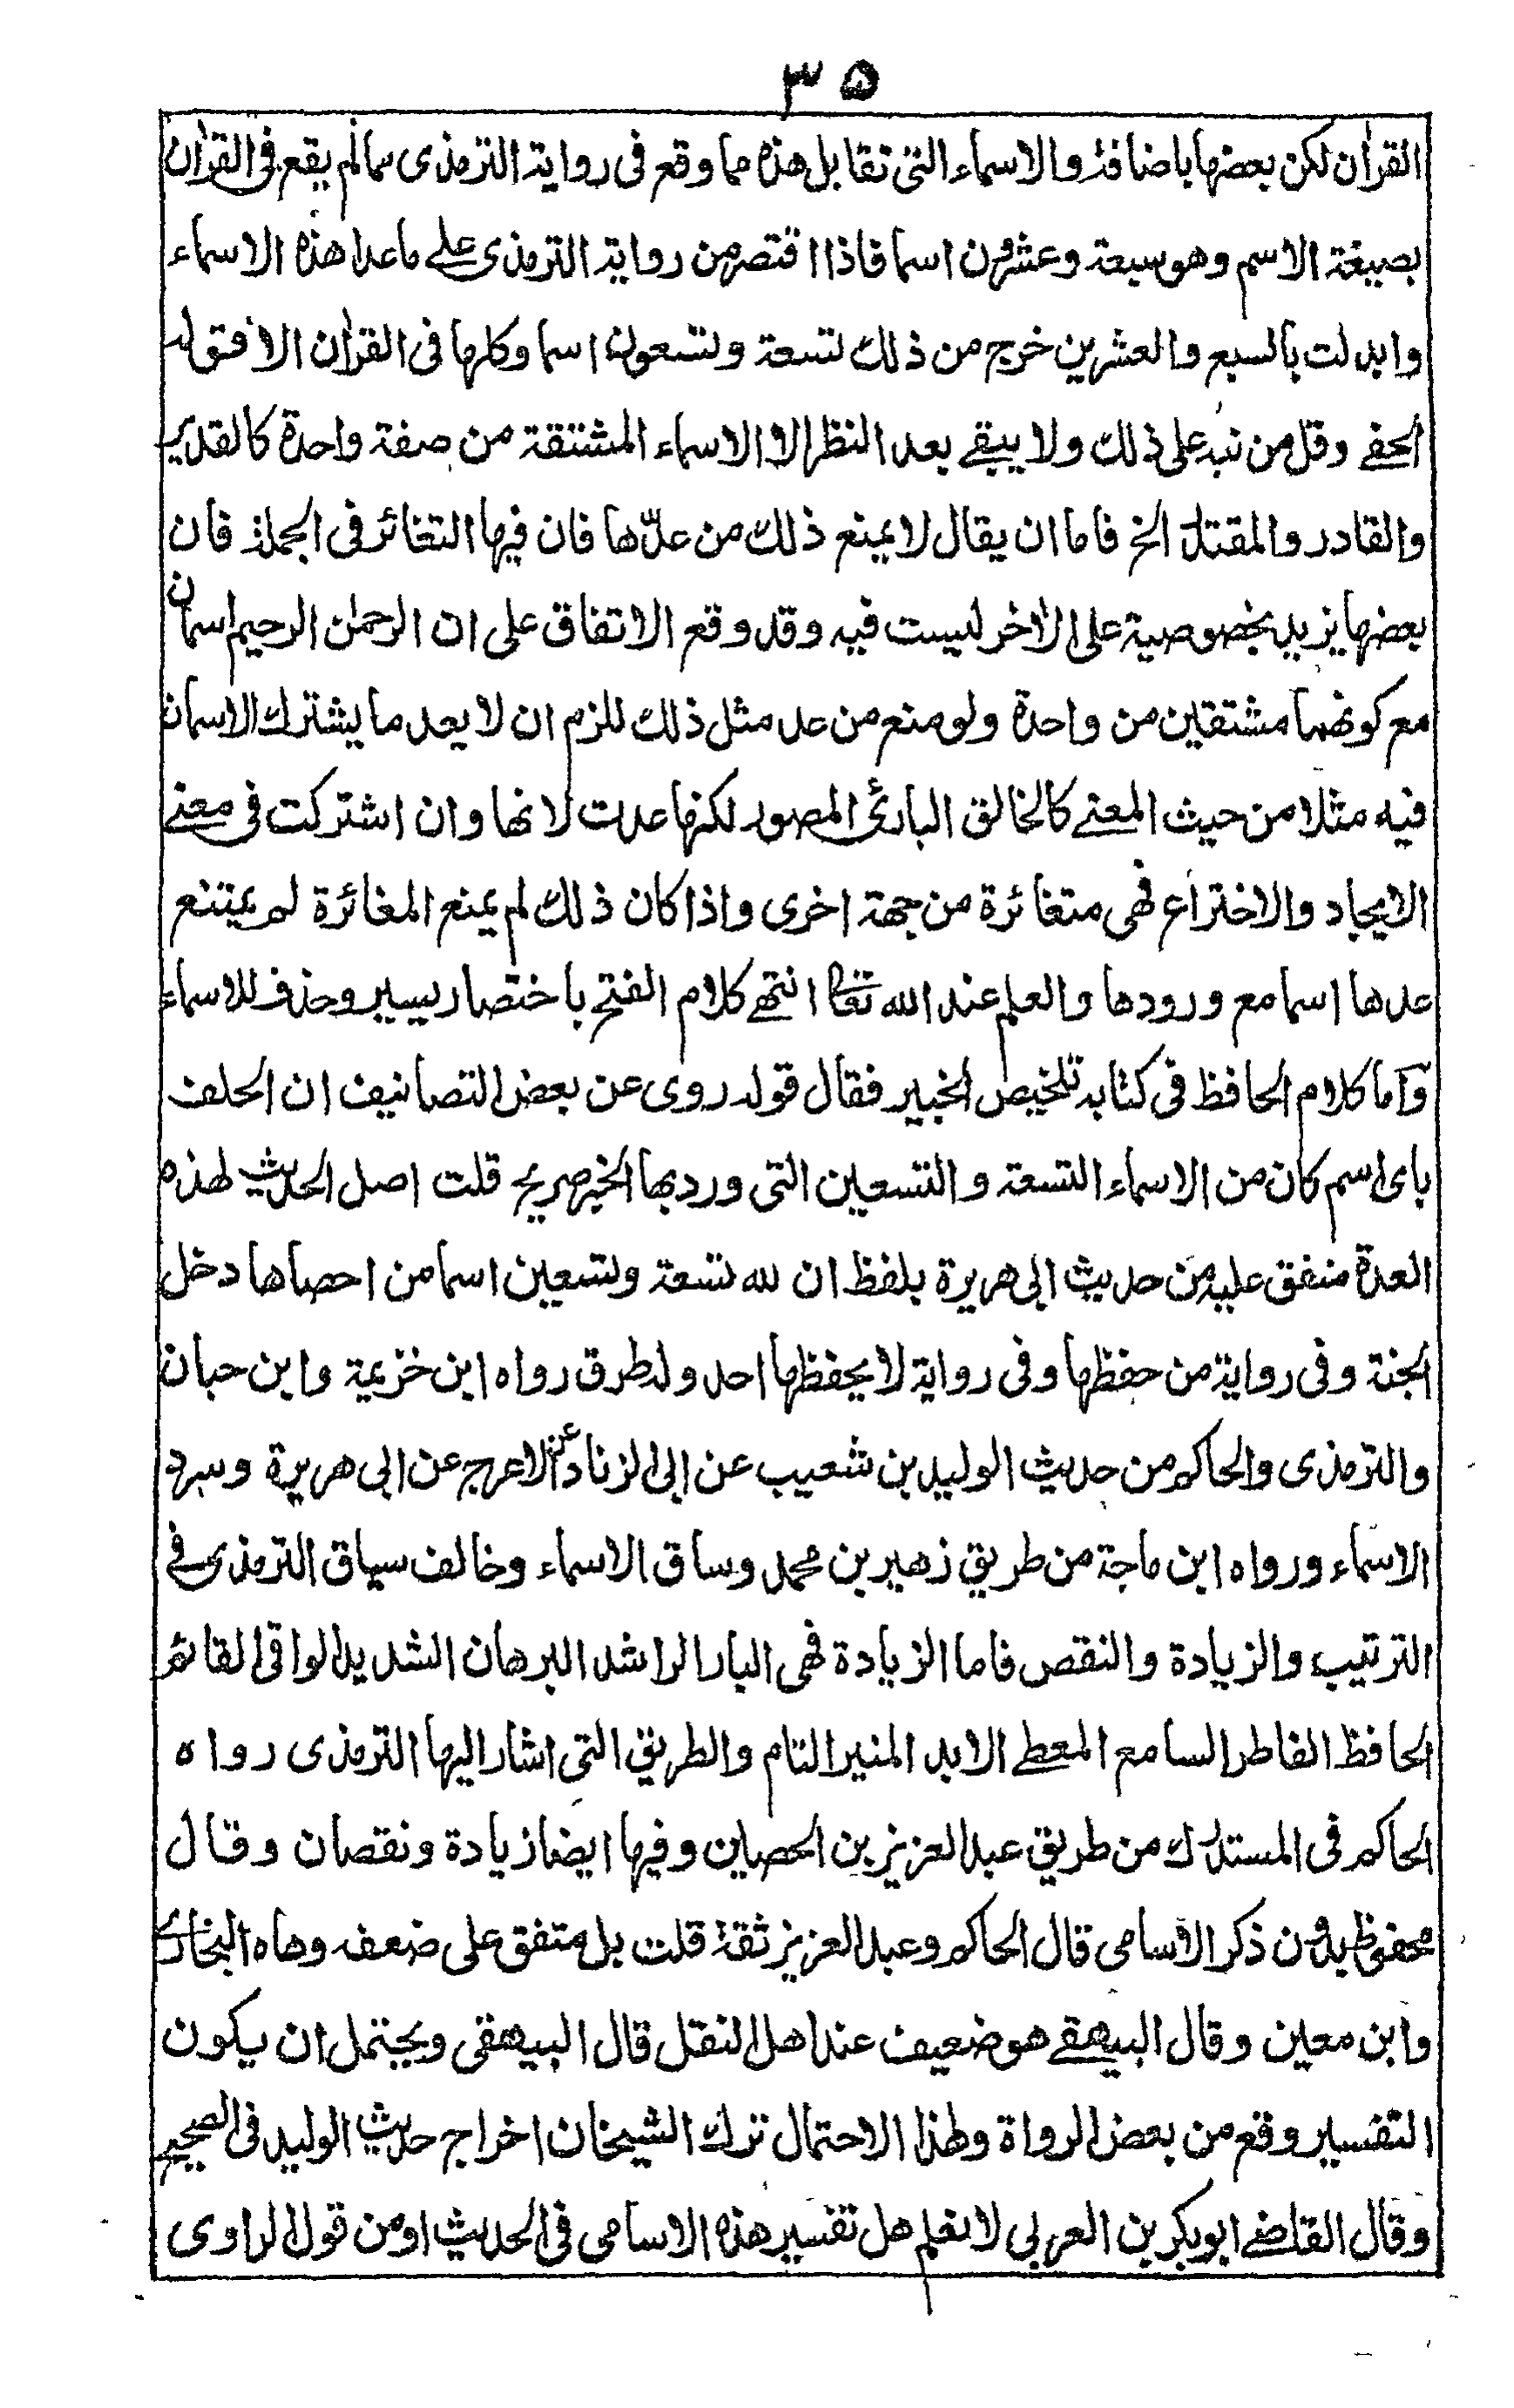 ٣٥
القرأن لكن بعضها باضافة والاسماء التى تقابل هذه مما وقع فى رواية الترمذى مما لم يقع فى القرأن
بصيغة الاسم وهو سبعة وعشرون اسما فاذا اقتصر من رواية الترمذى على ماعدا هذه الاسماء
وابدلت بالسبع والعشرين خرج من ذلك تسعة وتسعون اسما وكلها فى القرأن الا قوله
الحفى وقل من نبه على ذلك ولا يبقى بعد النظر الا الاسماء المشتقة من صفة واحدة كالقدير
والقادر والمقتدر الخ فاما ان يقال لا يمنع ذلك من عدّها فان فيها التغائر فى الجملة فان
بعضها يزيد بخصوصية على الأخر ليست فيه وقد وقع الاتفاق على ان الرحمن الرحيم اسمان
مع كونهما مشتقين من واحدة ولو منع من عد مثل ذلك للزم ان لا يعد ما يشترك الاسمان
فيه مثلا من حيث المعنى كالخالق البارئ المصور لكنها عدت لانها وان اشتركت فى معنى
الايجاد والاختراع فهى متغائرة من جهة اخرى واذا كان ذلك لم يمنع المغائرة لم يمتنع
عدها اسما مع ورودها والعلم عند الله تعالى انتهى كلام الفتح باختصار يسير وحذف للاسماء
وآما كلام الحافظ فى كتابه تلخيص الحبير فقال قوله روى عن بعض التصانيف ان الحلف
باى اسم كان من الاسماء التسعة والتسعين التى ورد بها الخبر صريح قلت اصل الحديث لهذه
العدة متفق عليه من حديث ابى هريرة بلفظ ان لله تسعة وتسعين اسما من احصاها دخل
الجنة وفى رواية من حفظها وفى رواية لا يحفظها احد وله طرق رواه ابن خزيمة وابن حبان
والترمذى والحاكم من حديث الوليد بن شعيب عن ابى الزناد عن الاعرج عن ابى هريرة وسرد
الاسماء ورواه ابن ماجة من طريق زهير بن محمد وساق الاسماء وخالف سياق الترمذى فى
الترتيب والزيادة والنقص فاما الزيادة فهى البار الراشد البرهان الشديد الواقى القائم
الحافظ الفاطر السامع المعطى الابد المنير التام والطريق التى اشار اليها الترمذى رواه
الحاكم فى المستدرك من طريق عبد العزيز بن الحصين وفيها ايضا زيادة ونقصان وقال
محفوظ بدون ذكر الاسامى قال الحاكم وعبد العزيز ثقة قلت بل متفق على ضعفه وهاه البخارى
وابن معين وقال البيهقى هو ضعيف عند اهل النقل قال البيهقى ويحتمل ان يكون
التفسير وقع من بعض الرواة ولهذا الاحتمال ترك الشيخان اخراج حديث الوليد فى الصحيح
وقال القاضى ابو بكر بن العربى لا نعلم هل تفسير هذه الاسامى فى الحديث او من قول الراوى